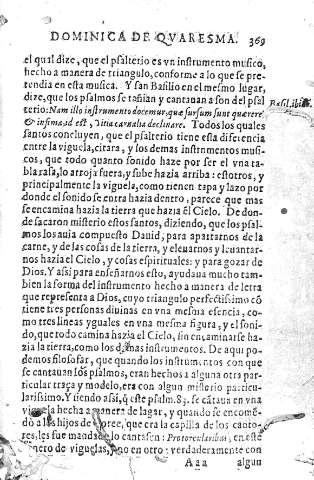 DOMINICA DE QVARESMA. 369
el qual dize, que el psalterio es vn instrumento musico,
hecho a manera de triangulo, conforme a lo que se pre-
tendia en esta musica. Y san Basilio en el mesmo lugar,
dize, que los psalmos se tañian y cantauan a son del psal
terio: Nam illo instrumento docemur, quæ sursum sunt quærere
& infima, id est, vitia carnalia declinare. Todos los quales
Basil. ibi
santos concluyen, que el psalterio tiene esta diferencia
entre la viguela, citara, y los demas instrumentos musi-
cos, que todo quanto sonido haze por ser el vna ta-
bla rasa, lo arroja fuera, y sube hazia arriba: estotros, y
principalmente la viguela, como tienen tapa y lazo por
donde el sonido se entra hazia dentro, parece que mas
se encamina hazia la tierra que hazia el Cielo. De don-
de sacaron misterio estos santos, diziendo, que los psal-
mos los auia compuesto Dauid, para apartarnos de la
carne, y de las cosas de la tierra, y eleuarnos y leuantar-
nos hazia el Cielo, y cosas espirituales: y para gozar de
Dios. Y assi para enseñarnos esto, ayudaua mucho tam-
bien la forma del instrumento hecho a manera de letra
que representa a Dios, cuyo triangulo perfectissimo cō
tiene tres personas diuinas en vna mesma esencia, co-
mo tres lineas yguales en vna mesma figura, y el soni-
do, que todo camina hazia el Cielo, sin encaminarse ha-
zia la tierra, como los demas instrumentos. De aqui po-
demos filosofar, que quando los instrumentos con que
se cantauan los psalmos, eran hechos a alguna otra par-
ticular traça y modelo, era con algun misterio particu-
larissimo. Y siendo assi, q̃ este psalm. 83. se cātaua en vna
viguela hecha a manera de lagar, y quando se encomē-
dò a los hijos de Coree, que era la capilla de los canto-
res, les fue mandado lo cantasen: Protorcularibus, en este
genero de viguelas, y no en otro: verdaderamente con
Aaa algun